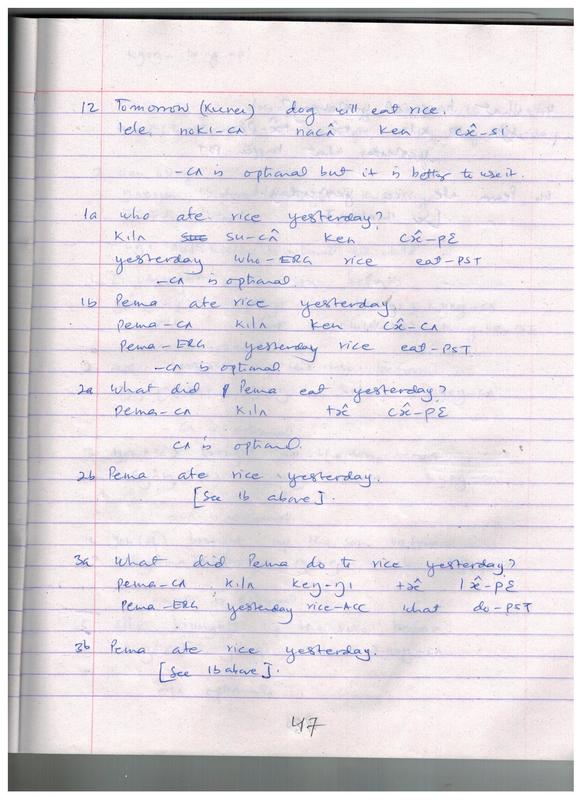 12 Tomorrow (Kunu) dog will eat rice.
lele nokı-cʌ nacʌ̂ ken cx̂-si
-cʌ is optional but it is better to use it.
1a who ate rice yesterday?
kilʌ su-cʌ̂ ken cx̂-pɛ
yesterday who-ERG rice eat-PST
-cʌ is optional.
1b Pema ate rice yesterday.
pema-cʌ kilʌ ken cx̂-cʌ
pema-ERG yesterday rice eat-PST.
-cʌ is optional
2a What did Pema eat yesterday?
pema-cʌ kilʌ tx̂ cx̂-pɛ
cʌ is optional.
2b Pema ate rice yesterday.
[See 1b above].
3a What did Pema do to rice yesterday?
pema-cʌ kilʌ keŋ-ŋı tx̂ lx̂-pɛ
pema-ERG yesterday rice-ACC what do-PST
3b Pema ate rice yesterday.
[See 1b above].
47